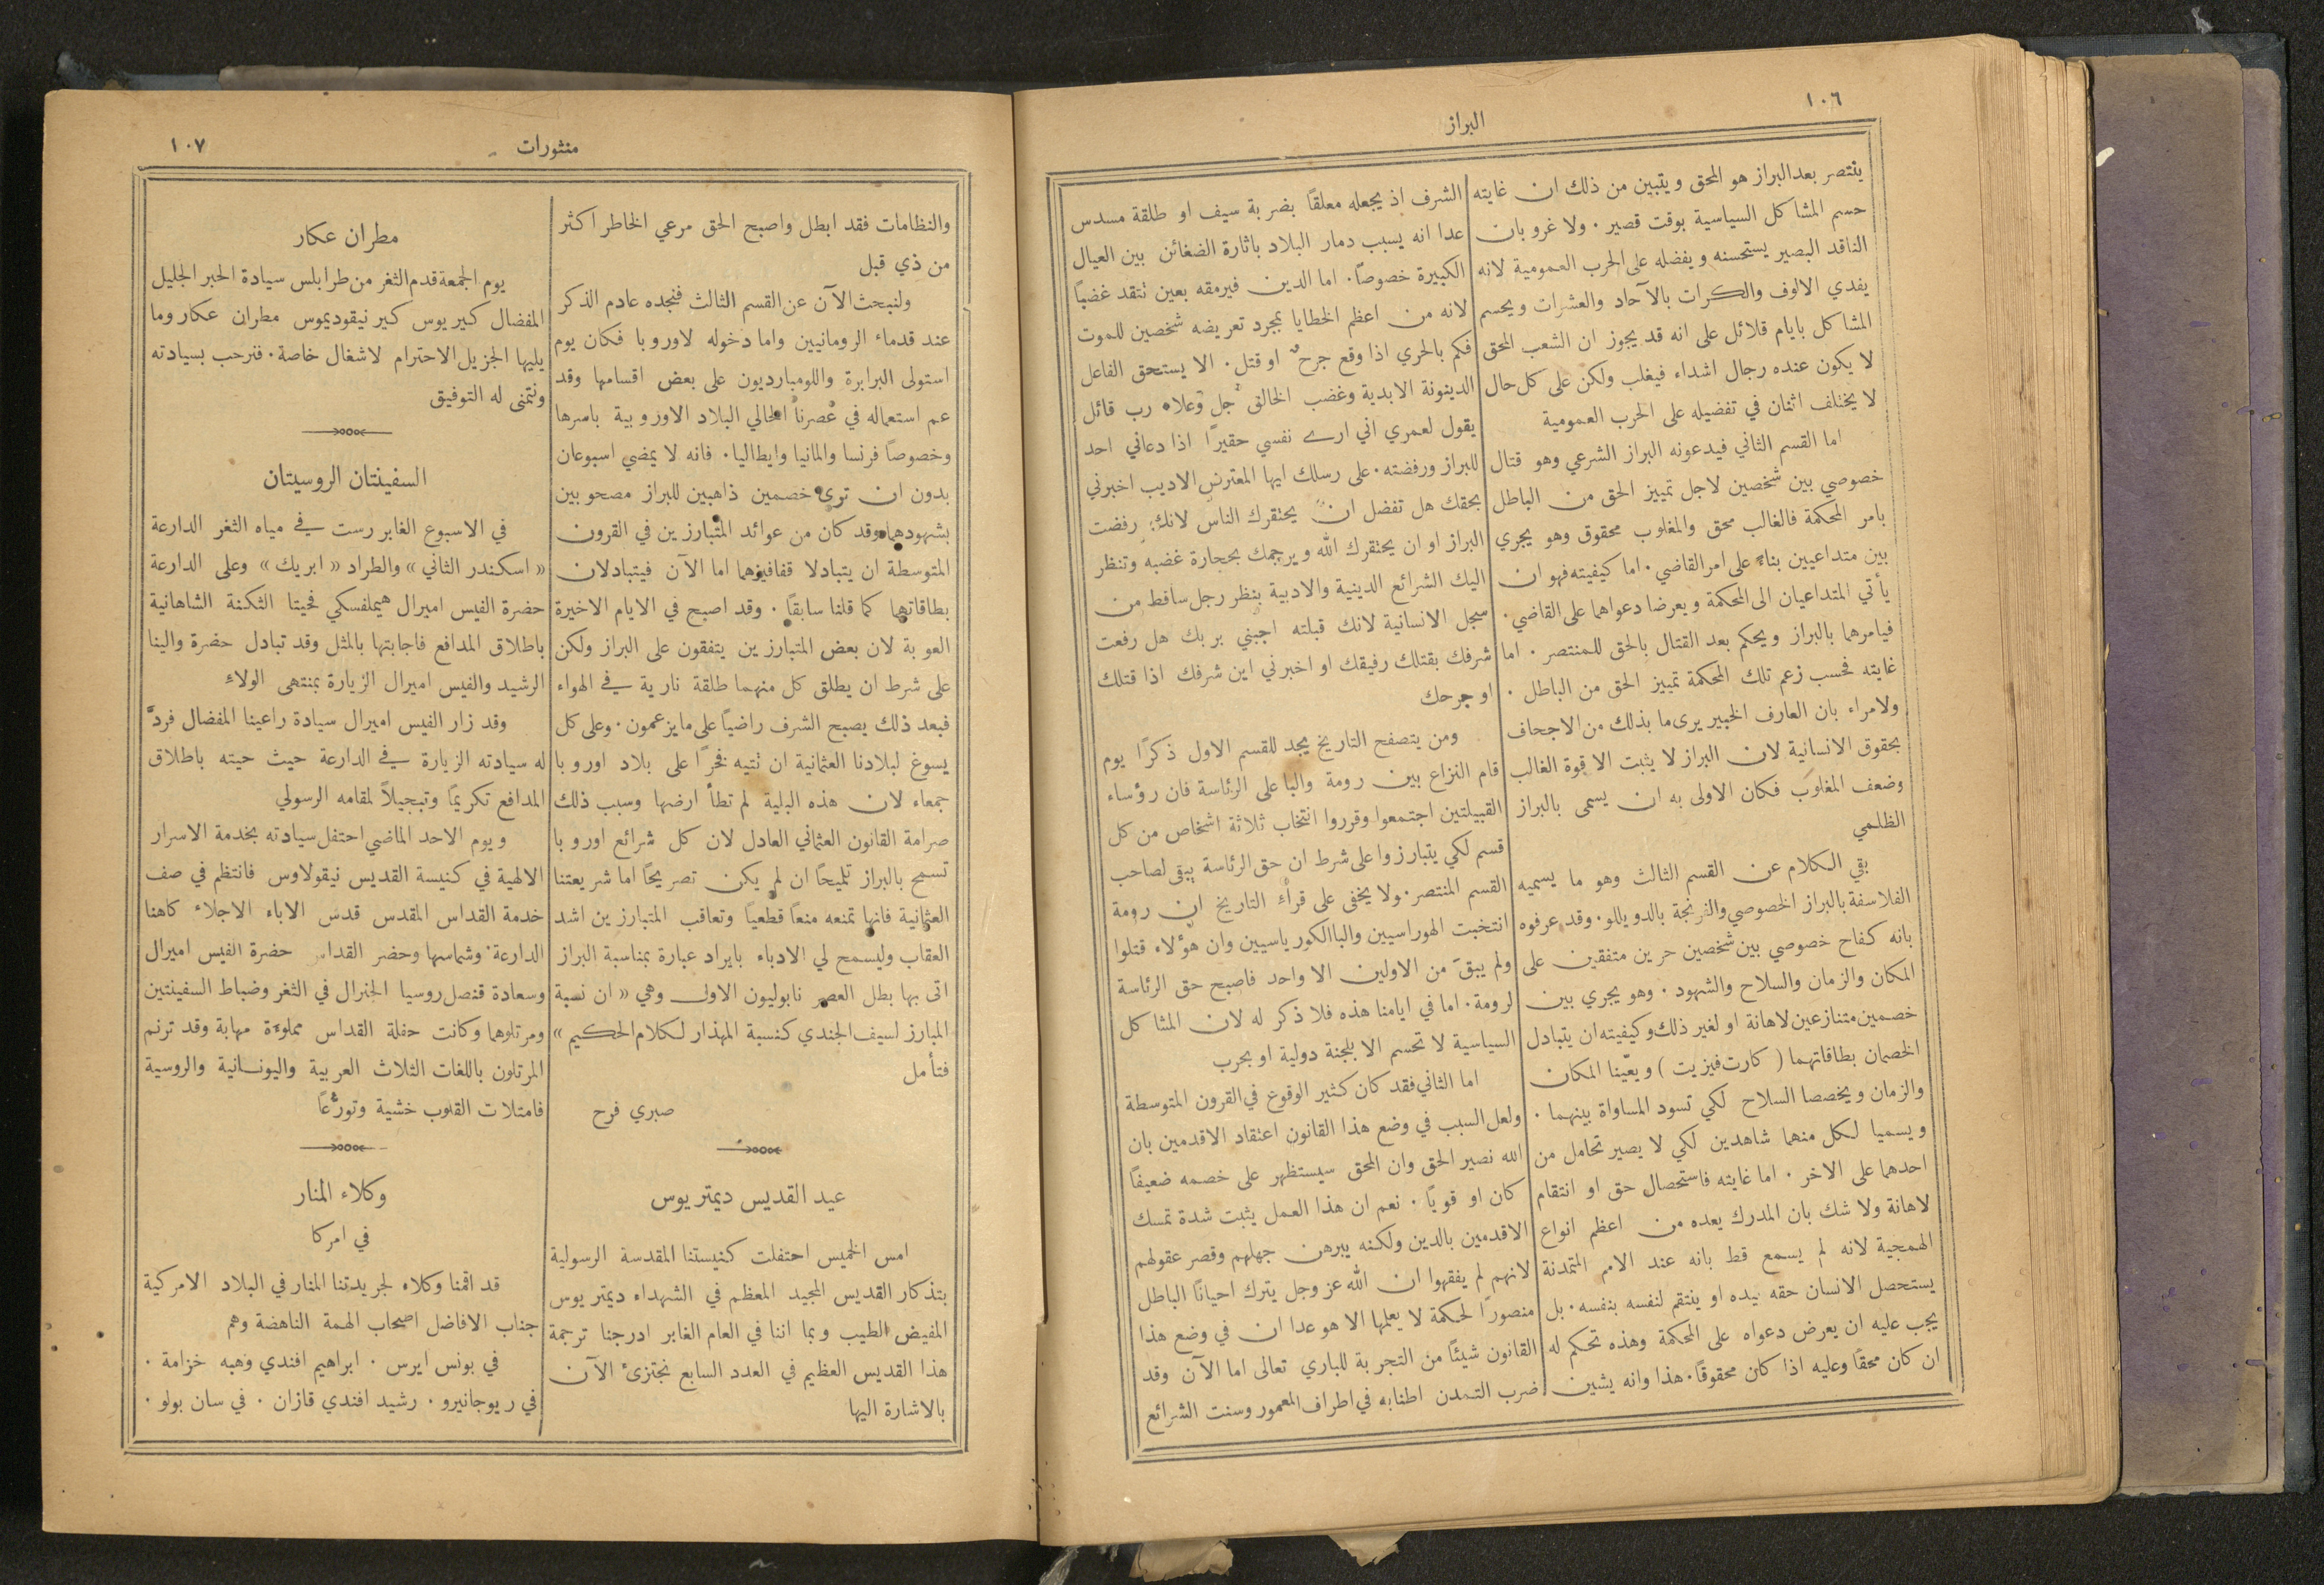 ١٠٦
البراز
ينتصر بعد البراز هو المحق ويتبين من ذلك ان غايته
حسم المشاكل السياسية بوقت قصير ٠ ولا غرو بان
الناقد البصير يستحسنه ويفضله على الحرب العمومية لانه
يفدي الالوف والكرات بالآحاد والعشرات ويحسم
المشاكل بايام قلائل على انه قد يجوز ان الشعب المحق
لا يكون عنده رجال اشداء فيغلب ولكن على كل حال
لا يختلف اثنان في تفضيله على الحرب العمومية
اما القسم الثاني فيدعونه البراز الشرعي وهو قتال
خصوصي بين شخصين لاجل تمييز الحق من الباطل
بامر المحكمة فالغالب محق والمغلوب محقوق وهو يجري
بين متداعيين بناءً على امر القاضي ٠ اما كيفيته فهو ان
يأتي المتداعيان الى المحكمة ويعرضا دعواهما على القاضي ٠
فيامرهما بالبراز ويحكم بعد القتال بالحق للمنتصر ٠ اما
غايته فحسب زعم تلك المحكمة تمييز الحق من الباطل ٠
ولا مراء بان العارف الخبير يرى ما بذلك من الاجحاف
بحقوق الانسانية لان البراز لا يثبت الا قوة الغالب
وضعف المغلوب فكان الاولى به ان يسمى بالبراز
الظلمي
بقي الكلام عن القسم الثالث وهو ما يسميه
الفلاسفة بالبراز الخصوصي والفرنجة بالدويللو ٠ وقد عرفوه
بانه كفاح خصوصي بين شخصين حرين متفقين على
المكان والزمان والسلاح والشهود ٠ وهو يجري بين
خصمين متنازعين لاهانة او لغير ذلك وكيفيته ان يتبادل
الخصمان بطاقاتهما (كارت فيزيت) ويعّينا المكان
والزمان ويخصصا السلاح لكي تسود المساواة بينهما ٠
ويسميا لكل منهما شاهدين لكي لا يصير تحامل من
احدهما على الاخر ٠ اما غايته فاستحصال حق او انتقام
لاهانة ولا شك بان المدرك يعده من اعظم انواع
الهمجية لانه لم يسمع قط بانه عند الامم المتمدنة
يستحصل الانسان حقه بيده او ينتقم لنفسه بنفسه ٠ بل
يجب عليه ان يعرض دعواه على المحكمة وهذه تحكم له
ان كان محقًا وعليه اذا كان محقوقًا ٠ هذا وانه يشين
الشرف اذ يجعله معلقًا بضربة سيف او طلقة مسدس
عدا انه يسبب دمار البلاد باثارة الضغائن بين العيال
الكبيرة خصوصًا ٠ اما الدين فيرمقه بعين تتقد غضبًا
لانه من اعظم الخطايا بمجرد تعريضه شخصين للموت
فكم بالحري اذا وقع جرحٌ او قتل ٠ الا يستحق الفاعل
الدينونة الابدية وغضب الخالق جل وعلا ٠ رب قائل
يقول لعمري اني ارى نفسي حقيرًا اذا دعاني احد
للبراز ورفضته ٠ على رسلك ايها المعترض الاديب اخبرني
بحقك هل تفضل ان يحتقرك الناس لانك رفضت
البراز او ان يحتقرك الله ويرجمك بحجارة غضبه وتنظر
اليك الشرائع الدينية والادبية بنظر رجل ساقط من
سجل الانسانية لانك قبلته اجبني بربك هل رفعت
شرفك بقتلك رفيقك او اخبرني اين شرفك اذا قتلك
او جرحك
ومن يتصفح التاريخ يجد للقسم الاول ذكرًا يوم
قام النزاع بين رومة والبا على الرئاسة فان رؤساء
القبيلتين اجتمعوا وقرروا انتخاب ثلاثة اشخاص من كل
قسم لكي يتبارزوا على شرط ان حق الرئاسة يبقى لصاحب
القسم المنتصر ٠ ولا يخفى على قرأء التاريخ ان رومة
انتخبت الهوراسيين والبا الكورياسيين وان هؤلاء قتلوا
ولم يبقَ من الاولين الا واحد فاصبح حق الرئاسة
لرومة ٠ اما في ايامنا هذه فلا ذكر له لان المشاكل
السياسية لا تحسم الا بلجنة دولية او بحرب
اما الثاني فقد كان كثير الوقوع في القرون المتوسطة
ولعل السبب في وضع هذا القانون اعتقاد الاقدمين بان
الله نصير الحق وان المحق سيستظهر على خصمه ضعيفًا
كان او قويًا ٠ نعم ان هذا العمل يثبت شدة تمسك
الاقدمين بالدين ولكنه يبرهن جهلهم وقصر عقولهم
لانهم لم يفقهوا ان الله عز وجل يترك احيانًا الباطل
منصورًا لحكمة لا يعلمها الا هو عدا ان في وضع هذا
القانون شيئًا من التجربة للباري تعالى اما الآن وقد
ضرب التمدن اطنابه في اطراف المعمور وسنت الشرائع
منثورات
١٠٧
والنظامات فقد ابطل واصبح الحق مرعي الخاطر اكثر
من ذي قبل
ولنبحث الآن عن القسم الثالث فنجده عادم الذكر
عند قدماء الرومانيين واما دخوله لاوروبا فكان يوم
استولى البرابرة واللومبارديون على بعض اقسامها وقد
عم استعماله في عصرنا الحالي البلاد الاوروبية باسرها
وخصوصًا فرنسا والمانيا وايطاليا ٠ فانه لا يمضي اسبوعان
بدون ان ترى خصمين ذاهبين للبراز مصحوبين
بشهودهما وقد كان من عوائد المتبارزين في القرون
المتوسطة ان يتبادلا قفافيزهما اما الآن فيتبادلان
بطاقاتهما كما قلنا سابقًا ٠ وقد اصبح في الايام الاخيرة
العوبة لان بعض المتبارزين يتفقون على البراز ولكن
على شرط ان يطلق كل منهما طلقة نارية في الهواء
فبعد ذلك يصبح الشرف راضيًا على ما يزعمون ٠ وعلى كل
يسوغ لبلادنا العثمانية ان تتيه فخرًا على بلاد اوروبا
جمعاء لان هذه البلية لم تطأ ارضها وسبب ذلك
صرامة القانون العثماني العادل لان كل شرائع اوروبا
تسمح بالبراز تلميحًا ان لم يكن تصريحًا اما شريعتنا
العثمانية فانها تمنعه منعًا قطعيًا وتعاقب المتبارزين اشد
العقاب وليسمح لي الادباء بايراد عبارة بمناسبة البراز
اتى بها بطل العصر نابوليون الاول وهي «ان نسبة
المبارز لسيف الجندي كنسبة المهذار لكلام الحكيم»
فتأمل
صبري فرح
عيد القديس ديمتريوس
امس الخميس احتفلت كنيستنا المقدسة الرسولية
بتذكار القديس المجيد المعظم في الشهداء ديمتريوس
المفيض الطيب وبما اننا في العام الغابر ادرجنا ترجمة
هذا القديس العظيم في العدد السابع نجتزئ الآن
بالاشارة اليها
مطران عكار
يوم الجمعة قدم الثغر من طرابلس سيادة الحبر الجليل
المفضال كيريوس كير نيقوديموس مطران عكار وما
يليها الجزيل الاحترام لاشغال خاصة ٠ فنرحب بسيادته
ونتمنى له التوفيق
السفينتان الروسيتان
في الاسبوع الغابر رست في مياه الثغر الدارعة
«اسكندر الثاني» والطراد «ابريك» وعلى الدارعة
حضرة الفيس اميرال هيملفسكي فحيتا الثكنة الشاهانية
باطلاق المدافع فاجابتها بالمثل وقد تبادل حضرة والينا
الرشيد والفيس اميرال الزيارة بمنتهى الولاء
وقد زار الفيس اميرال سيادة راعينا المفضال فردَّ
له سيادته الزيارة في الدارعة حيث حيته باطلاق
المدافع تكريمًا وتبجيلاً لمقامه الرسولي
ويوم الاحد الماضي احتفل سيادته بخدمة الاسرار
الالهية في كنيسة القديس نيقولاوس فانتظم في صف
خدمة القداس المقدس قدس الاباء الاجلاء كاهنا
الدارعة وشماسها وحضر القداس حضرة الفيس اميرال
وسعادة قنصل روسيا الجنرال في الثغر وضباط السفينتين
ومرتلوهما وكانت حفلة القداس مملوءة مهابة وقد ترنم
المرتلون باللغات الثلاث العربية واليونانية والروسية
فامتلات القلوب خشية وتورُّعًا
وكلاء المنار
في امركا
قد اقمنا وكلاء لجريدتنا المنار في البلاد الامركية
جناب الافاضل اصحاب الهمة الناهضة وهم
في بونس ايرس ٠ ابراهيم افندي وهبه خزامة ٠
في ريوجانيرو ٠ رشيد افندي قازان ٠ في سان بولو ٠